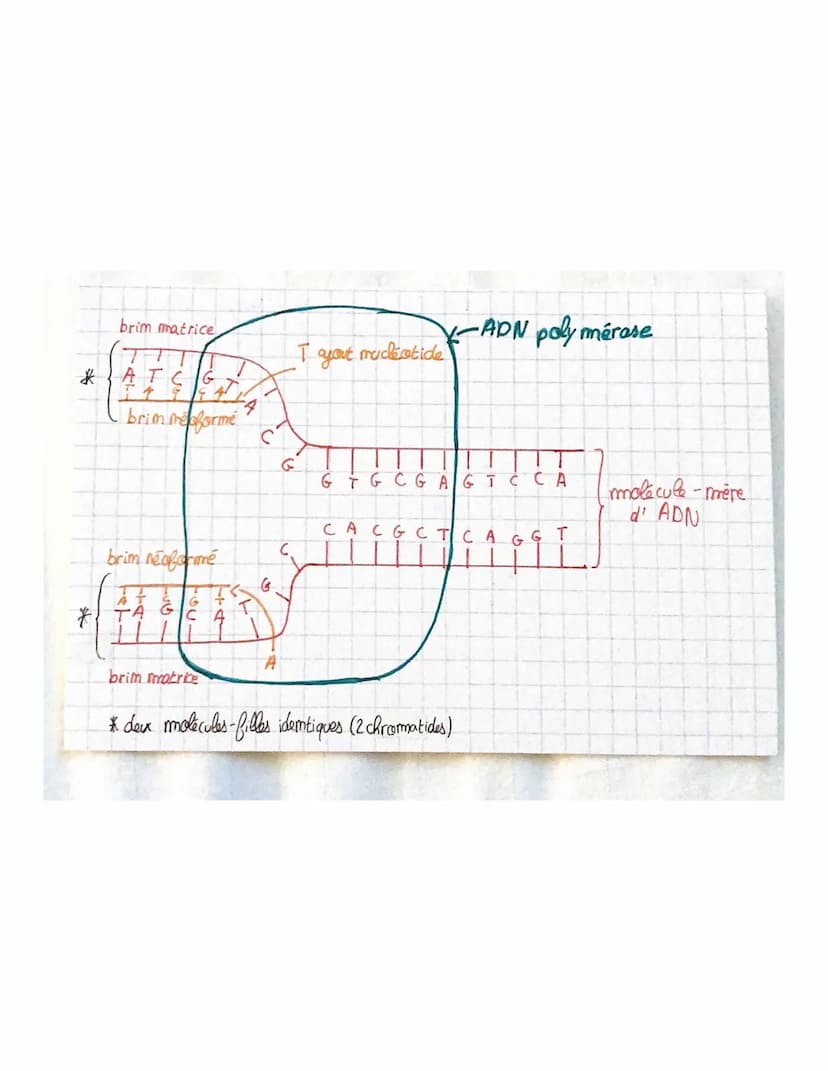 brim matrice
ADN polymérase
T ajout nucléotide
* A T C G T A C G
T A G C A
brim néoformé
G T G C G A G T C C A
molécule-mère
d' ADN
C A C G C T C A G G T
C
G
brim néoformé
A T C G T
* T A G C A T
A
brim matrice
* deux molécules-filles identiques (2 chromatides)